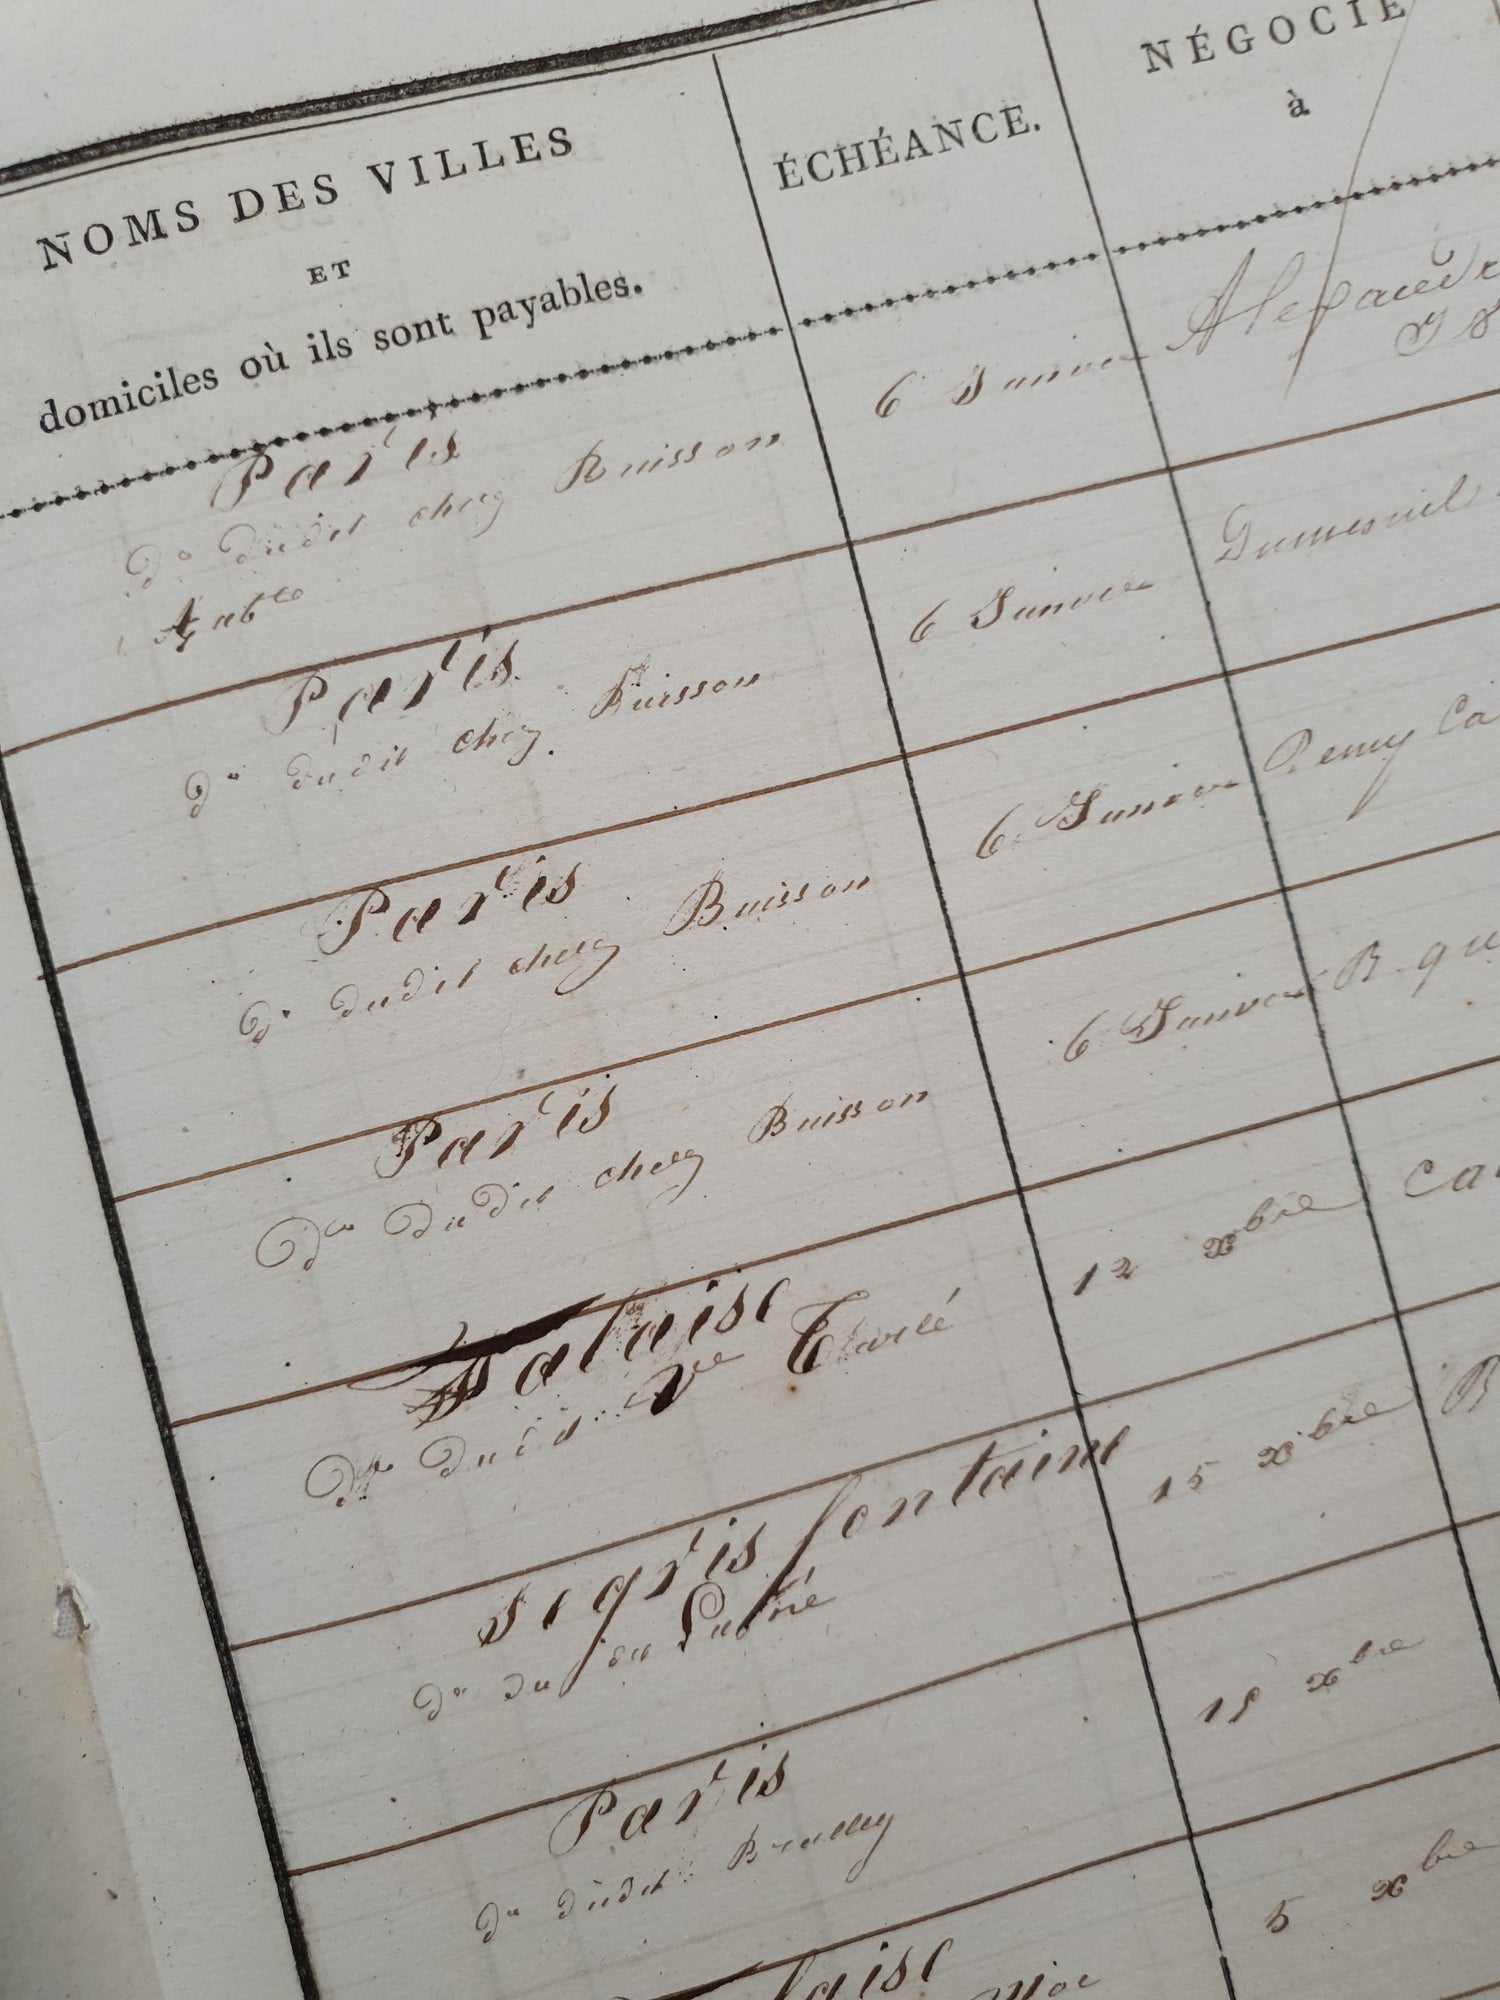 NOMS DES VILLES
ET
domiciles où ils sont payables.
ÉCHÉANCE.
NÉGOCIÉ
à
Paris
Do dudit chez Buisson
6 Janvier
Paris
do dudit chez Buisson
6 Janvier
Dumesnil
Paris
do dudit chez Buisson
6 Janvier
Remy Ca
Paris
Do Dudit chez Buisson
6 Janvier
B
falaise
Do Dudit Ve
12 xbre
Ca
Segris fontaine
do du
15 xbre
B
Paris
do dudit
15 xbre
laise
5 xbre